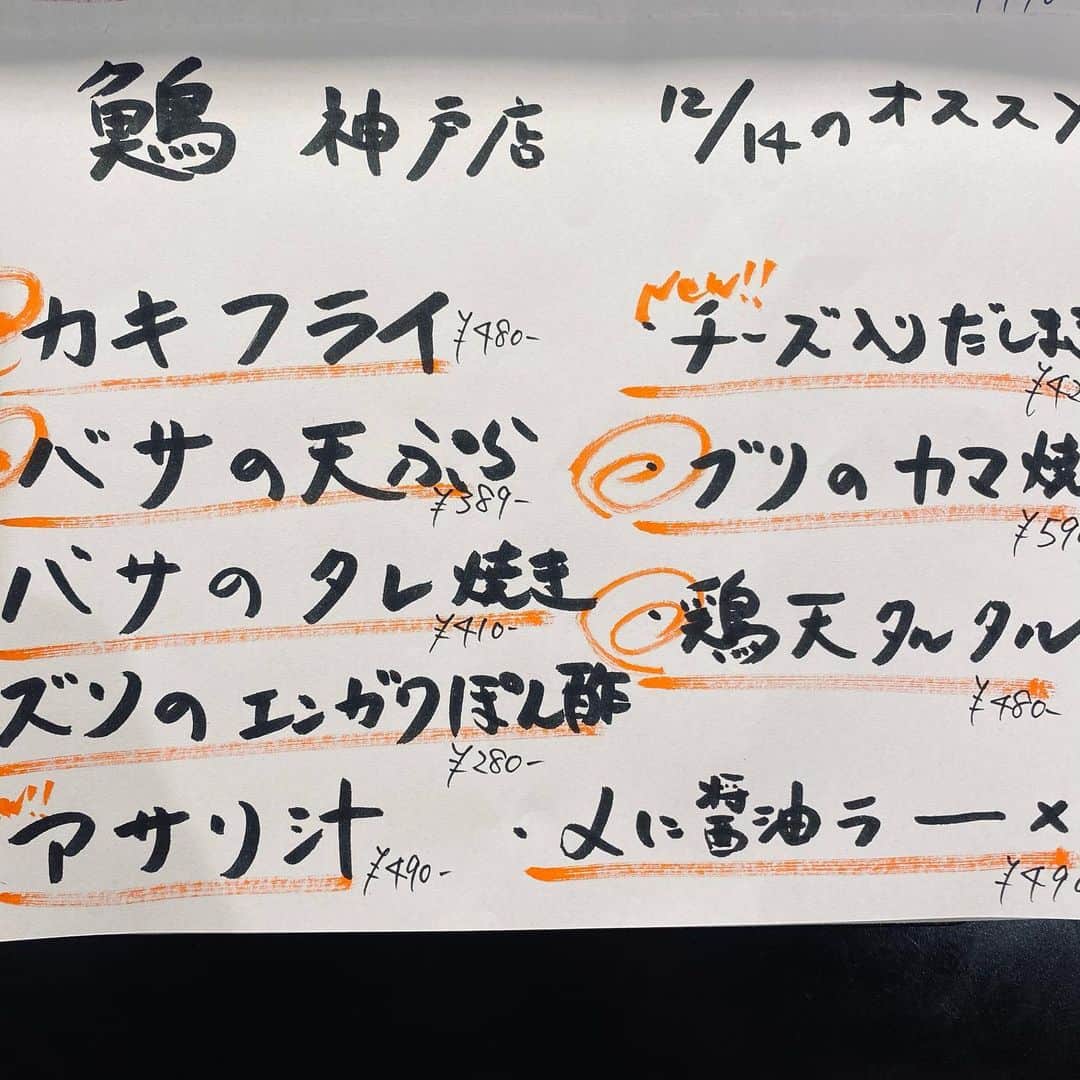 鷠 神戸店 12/14のオススメ
カキフライ ¥480-
バサの天ぷら ¥389-
バサのタレ焼き ¥410-
ズワのエンガワぽん酢 ¥280-
New!!
アサリ汁 ¥490-
New!!
・チーズ入りだしまき ¥42
・ブリのカマ焼 ¥590
・鶏天タルタル ¥480-
・〆に醤油ラーメ ¥490